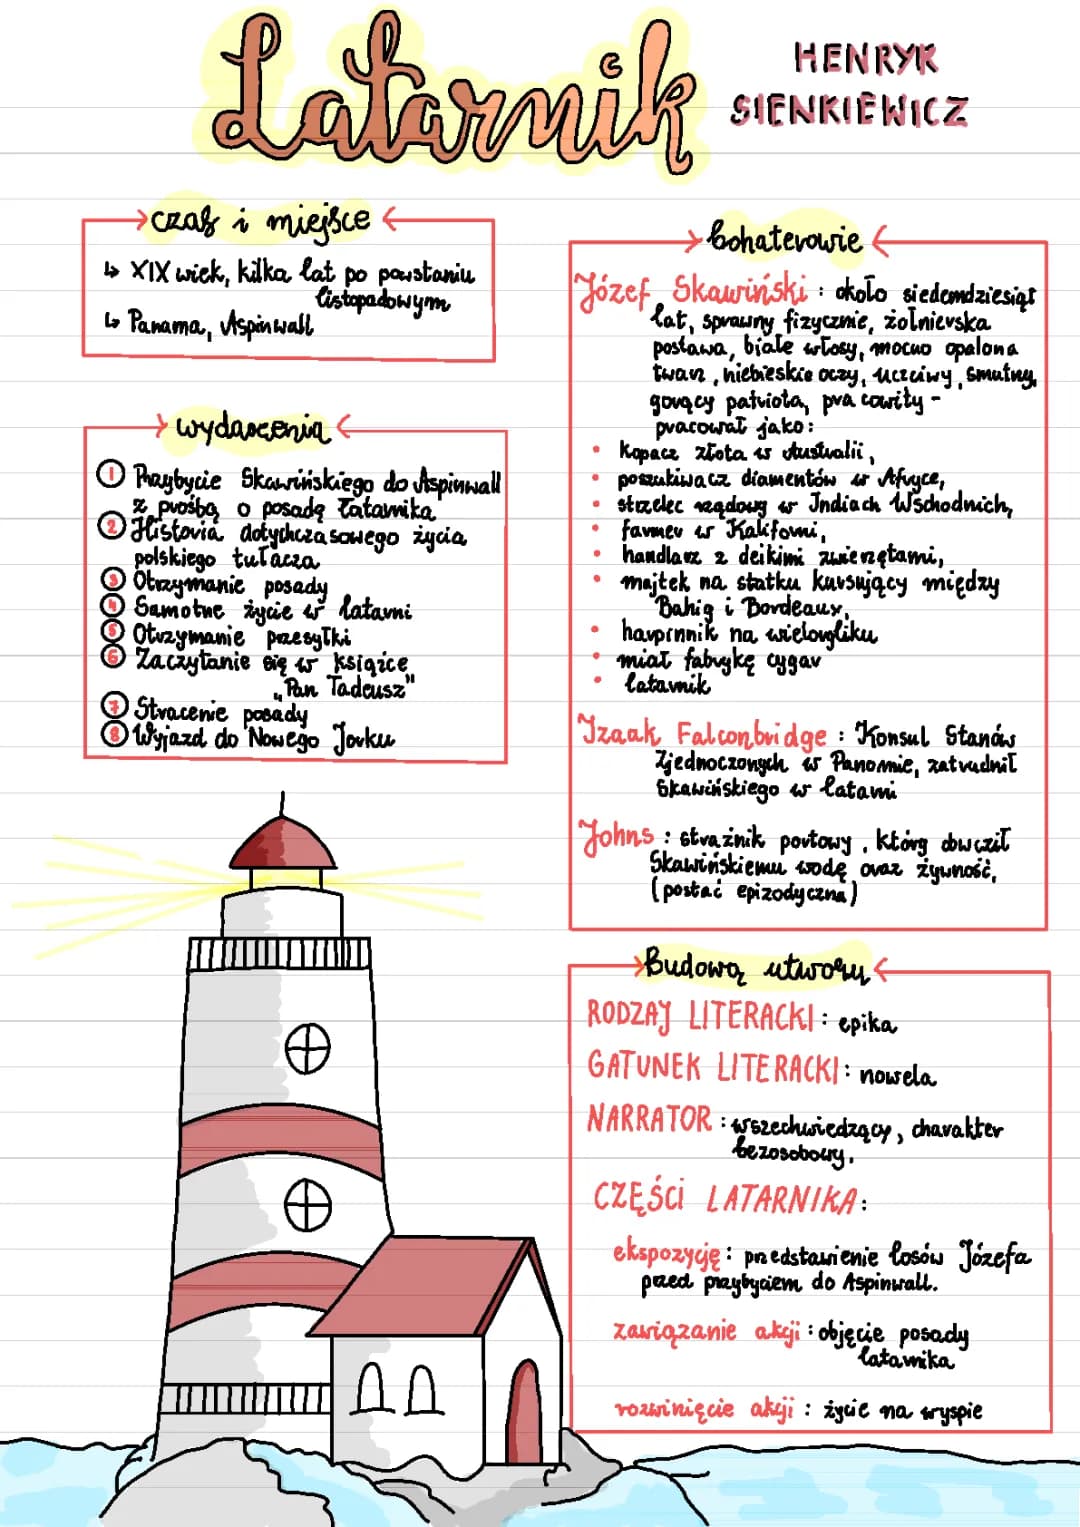 Latarnik
HENRYK
SIENKIEWICZ
czas i miejsce
↳ XIX wiek, kilka lat po powstaniu
listopadowym
↳ Panama, Aspinwall
wydarzenia
1 Przybycie Skawińskiego do Aspinwall
z prośbą o posadę latarnika
2 Historia dotychczasowego życia
polskiego tułacza
3 Otrzymanie posady
4 Samotne życie w latarni
5 Otrzymanie przesyłki
6 Zaczytanie się w książce
"Pan Tadeusz"
7 Stracenie posady
8 Wyjazd do Nowego Jorku
bohaterowie
Józef Skawiński: około siedemdziesiąt
lat, sprawny fizycznie, żołnierska
postawa, białe włosy, mocno opalona
twarz, niebieskie oczy, uczciwy, smutny,
gorący patriota, pracowity -
pracował jako:
• kopacz złota w Australii,
• poszukiwacz diamentów w Afryce,
• strzelec rządowy w Indiach Wschodnich,
• farmer w Kaliforni,
• handlarz z deikimi zwierzętami,
• majtek na statku kursujący między
Bahią i Bordeaux,
• harpinnik na wielorybliku
• miał fabrykę cygar
• latarnik
Izaak Falconbridge: Konsul Stanów
Zjednoczonych w Panamie, zatrudnił
Skawińskiego w latarni
Johns: strażnik portowy, który dowoził
Skawińskiemu wodę oraz żywność,
(postać epizodyczna)
Budowa utworu
RODZAJ LITERACKI: epika
GATUNEK LITERACKI: nowela
NARRATOR: wszechwiedzący, charakter
bezosobowy.
CZĘŚCI LATARNIKA:
ekspozycję: przedstawienie losów Józefa
przed przybyciem do Aspinwall.
zawiązanie akcji: objęcie posady
latarnika
rozwinięcie akcji: życie na wyspie